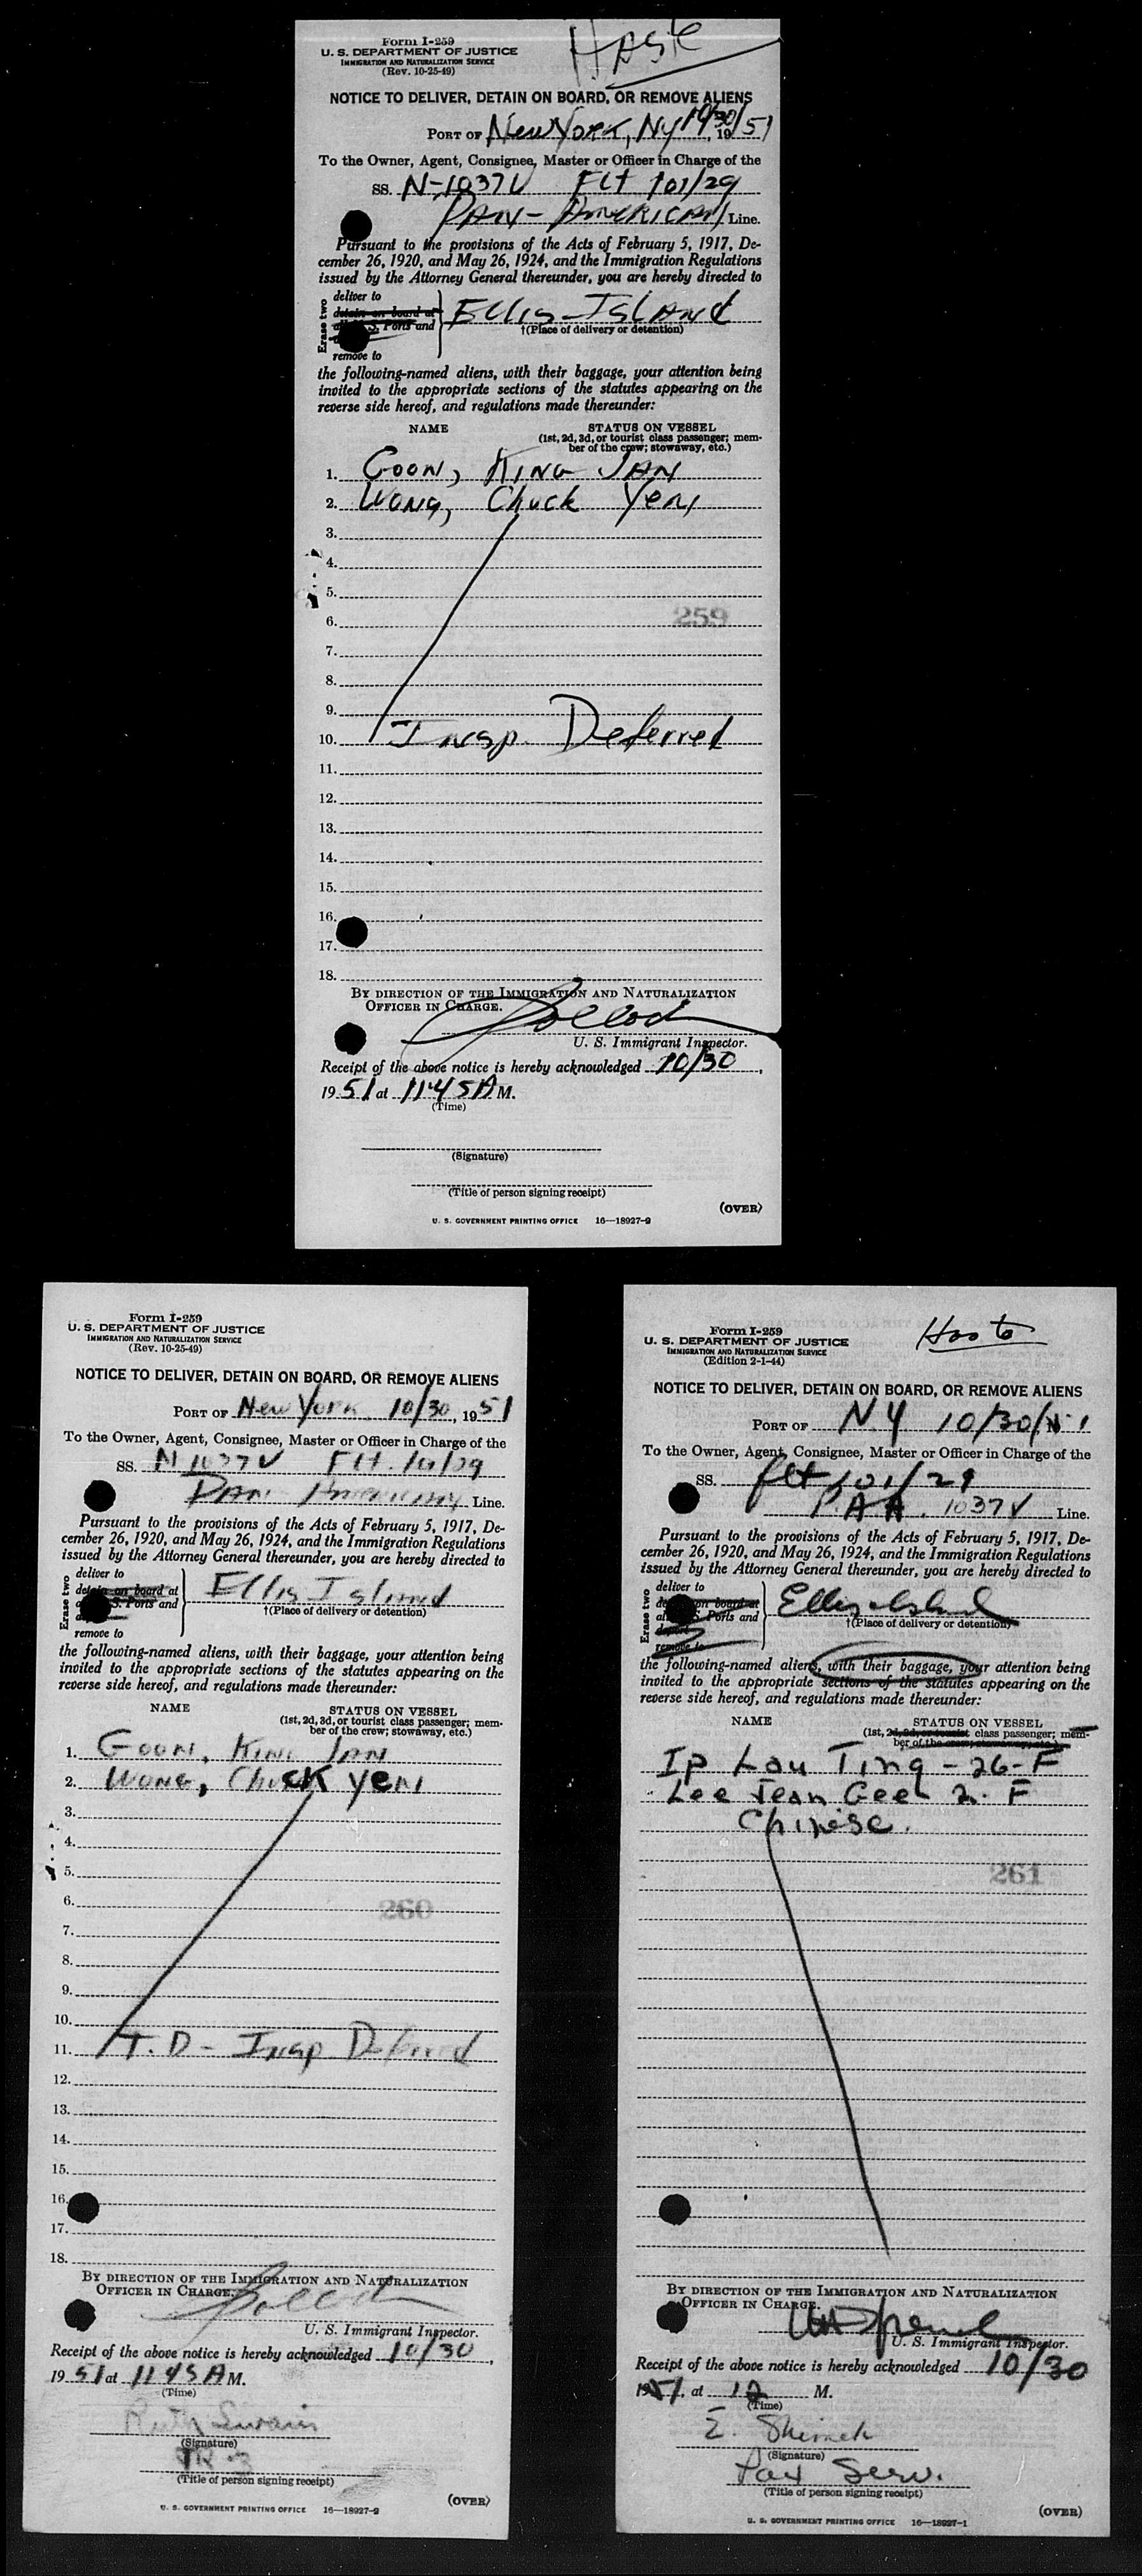 Form I-259
Haste
U. S. DEPARTMENT OF JUSTICE
IMMIGRATION AND NATURALIZATION SERVICE
(Rev. 10-25-49)
NOTICE TO DELIVER, DETAIN ON BOARD, OR REMOVE ALIENS
PORT OF New York, NY 10/30, 19/51
To the Owner, Agent, Consignee, Master or Officer in Charge of the
SS. N-1037V Flt 101/29
PAN-AMERICAN Line.
Pursuant to the provisions of the Acts of February 5, 1917, De-
cember 26, 1920, and May 26, 1924, and the Immigration Regulations
issued by the Attorney General thereunder, you are hereby directed to
Erase two
deliver to
detain on board at
S. Ports and
remove to
Ellis Island
†(Place of delivery or detention)
the following-named aliens, with their baggage, your attention being
invited to the appropriate sections of the statutes appearing on the
reverse side hereof, and regulations made thereunder:
NAME STATUS ON VESSEL
(1st, 2d, 3d, or tourist class passenger; mem-
ber of the crew; stowaway, etc.)
1. Goon, King Jan
2. Wong, Chuck Yen
3.
4.
5.
259
6.
7.
8.
9.
10. Insp. Deferred
11.
12.
13.
14.
15.
16.
17.
18.
BY DIRECTION OF THE IMMIGRATION AND NATURALIZATION
OFFICER IN CHARGE.
U. S. Immigrant Inspector.
Receipt of the above notice is hereby acknowledged 10/30,
1951 at 11:45 A M.
(Time)
(Signature)
(Title of person signing receipt)
(OVER)
U. S. GOVERNMENT PRINTING OFFICE 16—18927-2
Form I-259
U. S. DEPARTMENT OF JUSTICE
IMMIGRATION AND NATURALIZATION SERVICE
(Rev. 10-25-49)
NOTICE TO DELIVER, DETAIN ON BOARD, OR REMOVE ALIENS
PORT OF New York 10/30, 1951
To the Owner, Agent, Consignee, Master or Officer in Charge of the
SS. N 1037V Flt. 101/29
Pan American Line.
Pursuant to the provisions of the Acts of February 5, 1917, De-
cember 26, 1920, and May 26, 1924, and the Immigration Regulations
issued by the Attorney General thereunder, you are hereby directed to
Erase two
deliver to
detain on board at
S. Ports and
remove to
Ellis Island
†(Place of delivery or detention)
the following-named aliens, with their baggage, your attention being
invited to the appropriate sections of the statutes appearing on the
reverse side hereof, and regulations made thereunder:
NAME STATUS ON VESSEL
(1st, 2d, 3d, or tourist class passenger; mem-
ber of the crew; stowaway, etc.)
1. Goon, King Jan
2. Wong, Chuck Yen
3.
4.
5.
6.
260
7.
8.
9.
10.
11. T.D - Insp Deferred
12.
13.
14.
15.
16.
17.
18.
BY DIRECTION OF THE IMMIGRATION AND NATURALIZATION
OFFICER IN CHARGE.
U. S. Immigrant Inspector.
Receipt of the above notice is hereby acknowledged 10/30,
1951 at 1145 A M.
(Time)
Ruth Swain
(Signature)
(Title of person signing receipt)
(OVER)
U. S. GOVERNMENT PRINTING OFFICE 16—18927-2
Form I-259
Haste
U. S. DEPARTMENT OF JUSTICE
IMMIGRATION AND NATURALIZATION SERVICE
(Edition 2-1-44)
NOTICE TO DELIVER, DETAIN ON BOARD, OR REMOVE ALIENS
PORT OF N.Y 10/30/51
To the Owner, Agent, Consignee, Master or Officer in Charge of the
SS. flt 101/29
P.A.A. 1037V Line.
Pursuant to the provisions of the Acts of February 5, 1917, De-
cember 26, 1920, and May 26, 1924, and the Immigration Regulations
issued by the Attorney General thereunder, you are hereby directed to
Erase two
deliver to
on board at
S. Ports and
remove to
Ellis Island
†(Place of delivery or detention)
the following-named aliens, with their baggage, your attention being
invited to the appropriate sections of the statutes appearing on the
reverse side hereof, and regulations made thereunder:
NAME STATUS ON VESSEL
(1st, 2d, 3d, or tourist class passenger; mem-
ber of the crew; stowaway, etc.)
Ip Lau Ting - 26-F
Lee Jean Gee F
Chinese.
261
BY DIRECTION OF THE IMMIGRATION AND NATURALIZATION
OFFICER IN CHARGE.
U. S. Immigrant Inspector.
Receipt of the above notice is hereby acknowledged 10/30
1951, at 12 M.
(Time)
E. Shimek
(Signature)
Pax Serv.
(Title of person signing receipt)
(OVER)
U. S. GOVERNMENT PRINTING OFFICE 16—18927-1